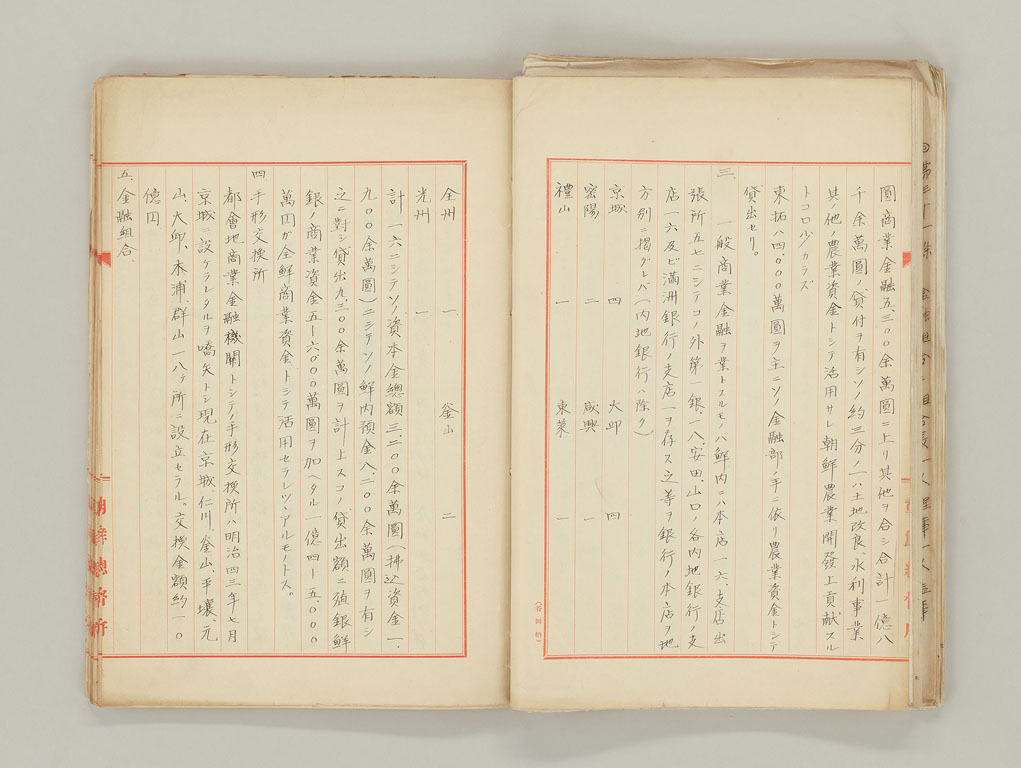 圓商業金融五、三〇〇余萬圓ニ上リ其他ヲ合シ合計一億八
千余萬圓ノ貸付ヲ有シソノ約三分ノ一ハ土地改良、水利事業
其ノ他ノ農業資金トシテ活用サレ朝鮮農業開發上貢献スル
トコロ少カラズ
東拓ハ四、〇〇〇萬圓ヲ主ニソノ金融部ノ手ニ依リ農業資金トシテ
貸出セリ。
三、一般商業金融ヲ業トスルモノハ鮮内ニハ本店一六、支店出
張所五七ニシテコノ外第一銀、一八、安田、山口ノ各内地銀行ノ支
店一六及ビ満洲銀行ノ支店一ヲ存ス之等ヲ銀行ノ本店ヲ地
方別ニ掲グレバ(内地銀行ハ除ク)
京城 四 大邱 四
密陽 二 咸興 一
禮山 一 東萊 一
(谷岡納)
全州 一 釜山 二
光州 一
計一六ニシテソノ資本金總額三、二〇〇余萬圓(拂込資金一、
九〇〇余萬圓)ニシテソノ鮮内預金八、二〇〇余萬圓ヲ有シ
之ニ對シ貸出九、三〇〇余萬圓ヲ計上スコノ貸出額ニ殖銀鮮
銀ノ商業資金五―六〇〇〇萬圓ヲ加ヘタル一億四―五、〇〇〇
萬円ガ全鮮商業資金トシテ活用セラレツヽアルモノトス。
四、手形交換所
都會地商業金融機関トシテノ手形交換所ハ明治四三年七月
京城ニ設ケラレタルヲ嚆矢トシ現在京城、仁川、釜山、平壤、元
山、大邱、木浦、群山ノ八ケ所ニ設立セラル。交換金額約一〇
億円
五、金融組合、
朝鮮總督府